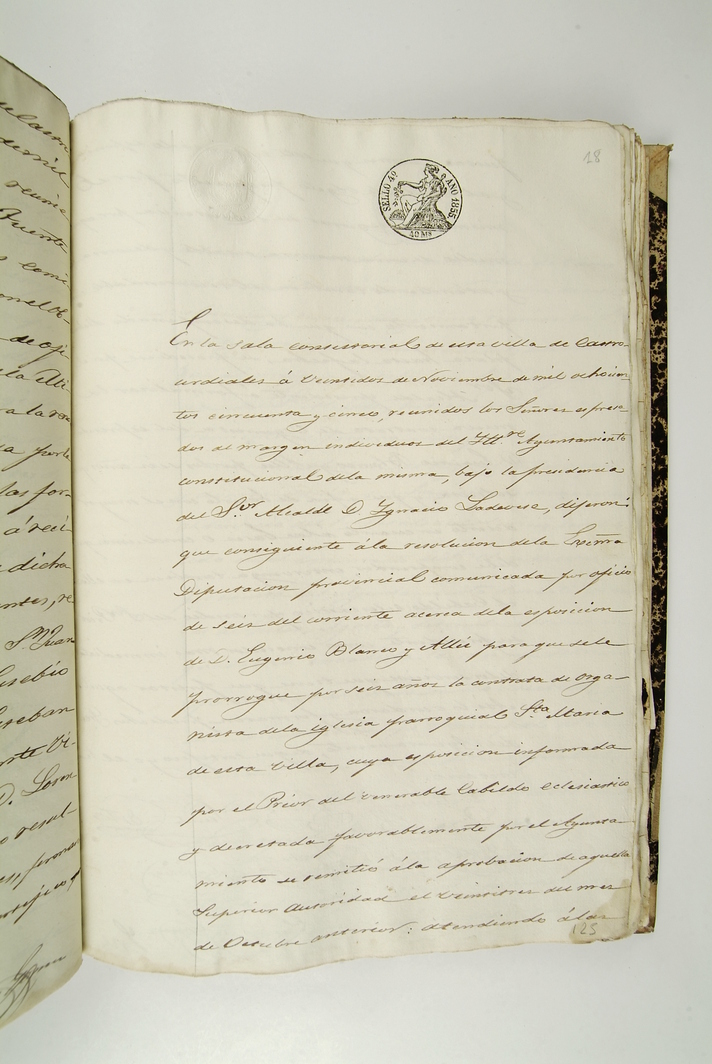 18
SELLO 4º AÑO 1855.
40 Ms
En la sala consistorial de esta villa de Castro-
urdiales á veintidos de Noviembre de mil ochocien-
tos cincuenta y cinco, reunidos los Señores espresa-
dos al margen individuos del Ill.re Ayuntamiento
constitucional de la misma, bajo la presidencia
del S.or Alcalde D. Ygnacio Ladevese, dijeron:
que consiguiente á la resolucion de la Excma
Diputacion provincial comunicada por oficio
de seis del corriente acerca de la esposicion
de D. Eugenio Blanco y para que se le
prorrogue por seis años la contrata de orga-
nista de la iglesia parroquial Sta Maria
de esta villa, cuya esposicion informada
por el Prior del venerable Cabildo eclesiastico
y decretada favorablemente por el Ayunta-
miento se remitió á la aprobacion de aquella
Superior autoridad el veintitres del mes
de Octubre anterior: atendiendo á las
125
reunie
á la
dicha
antes, re
Sn Juan
Eusebio
Esteban
D. Loren